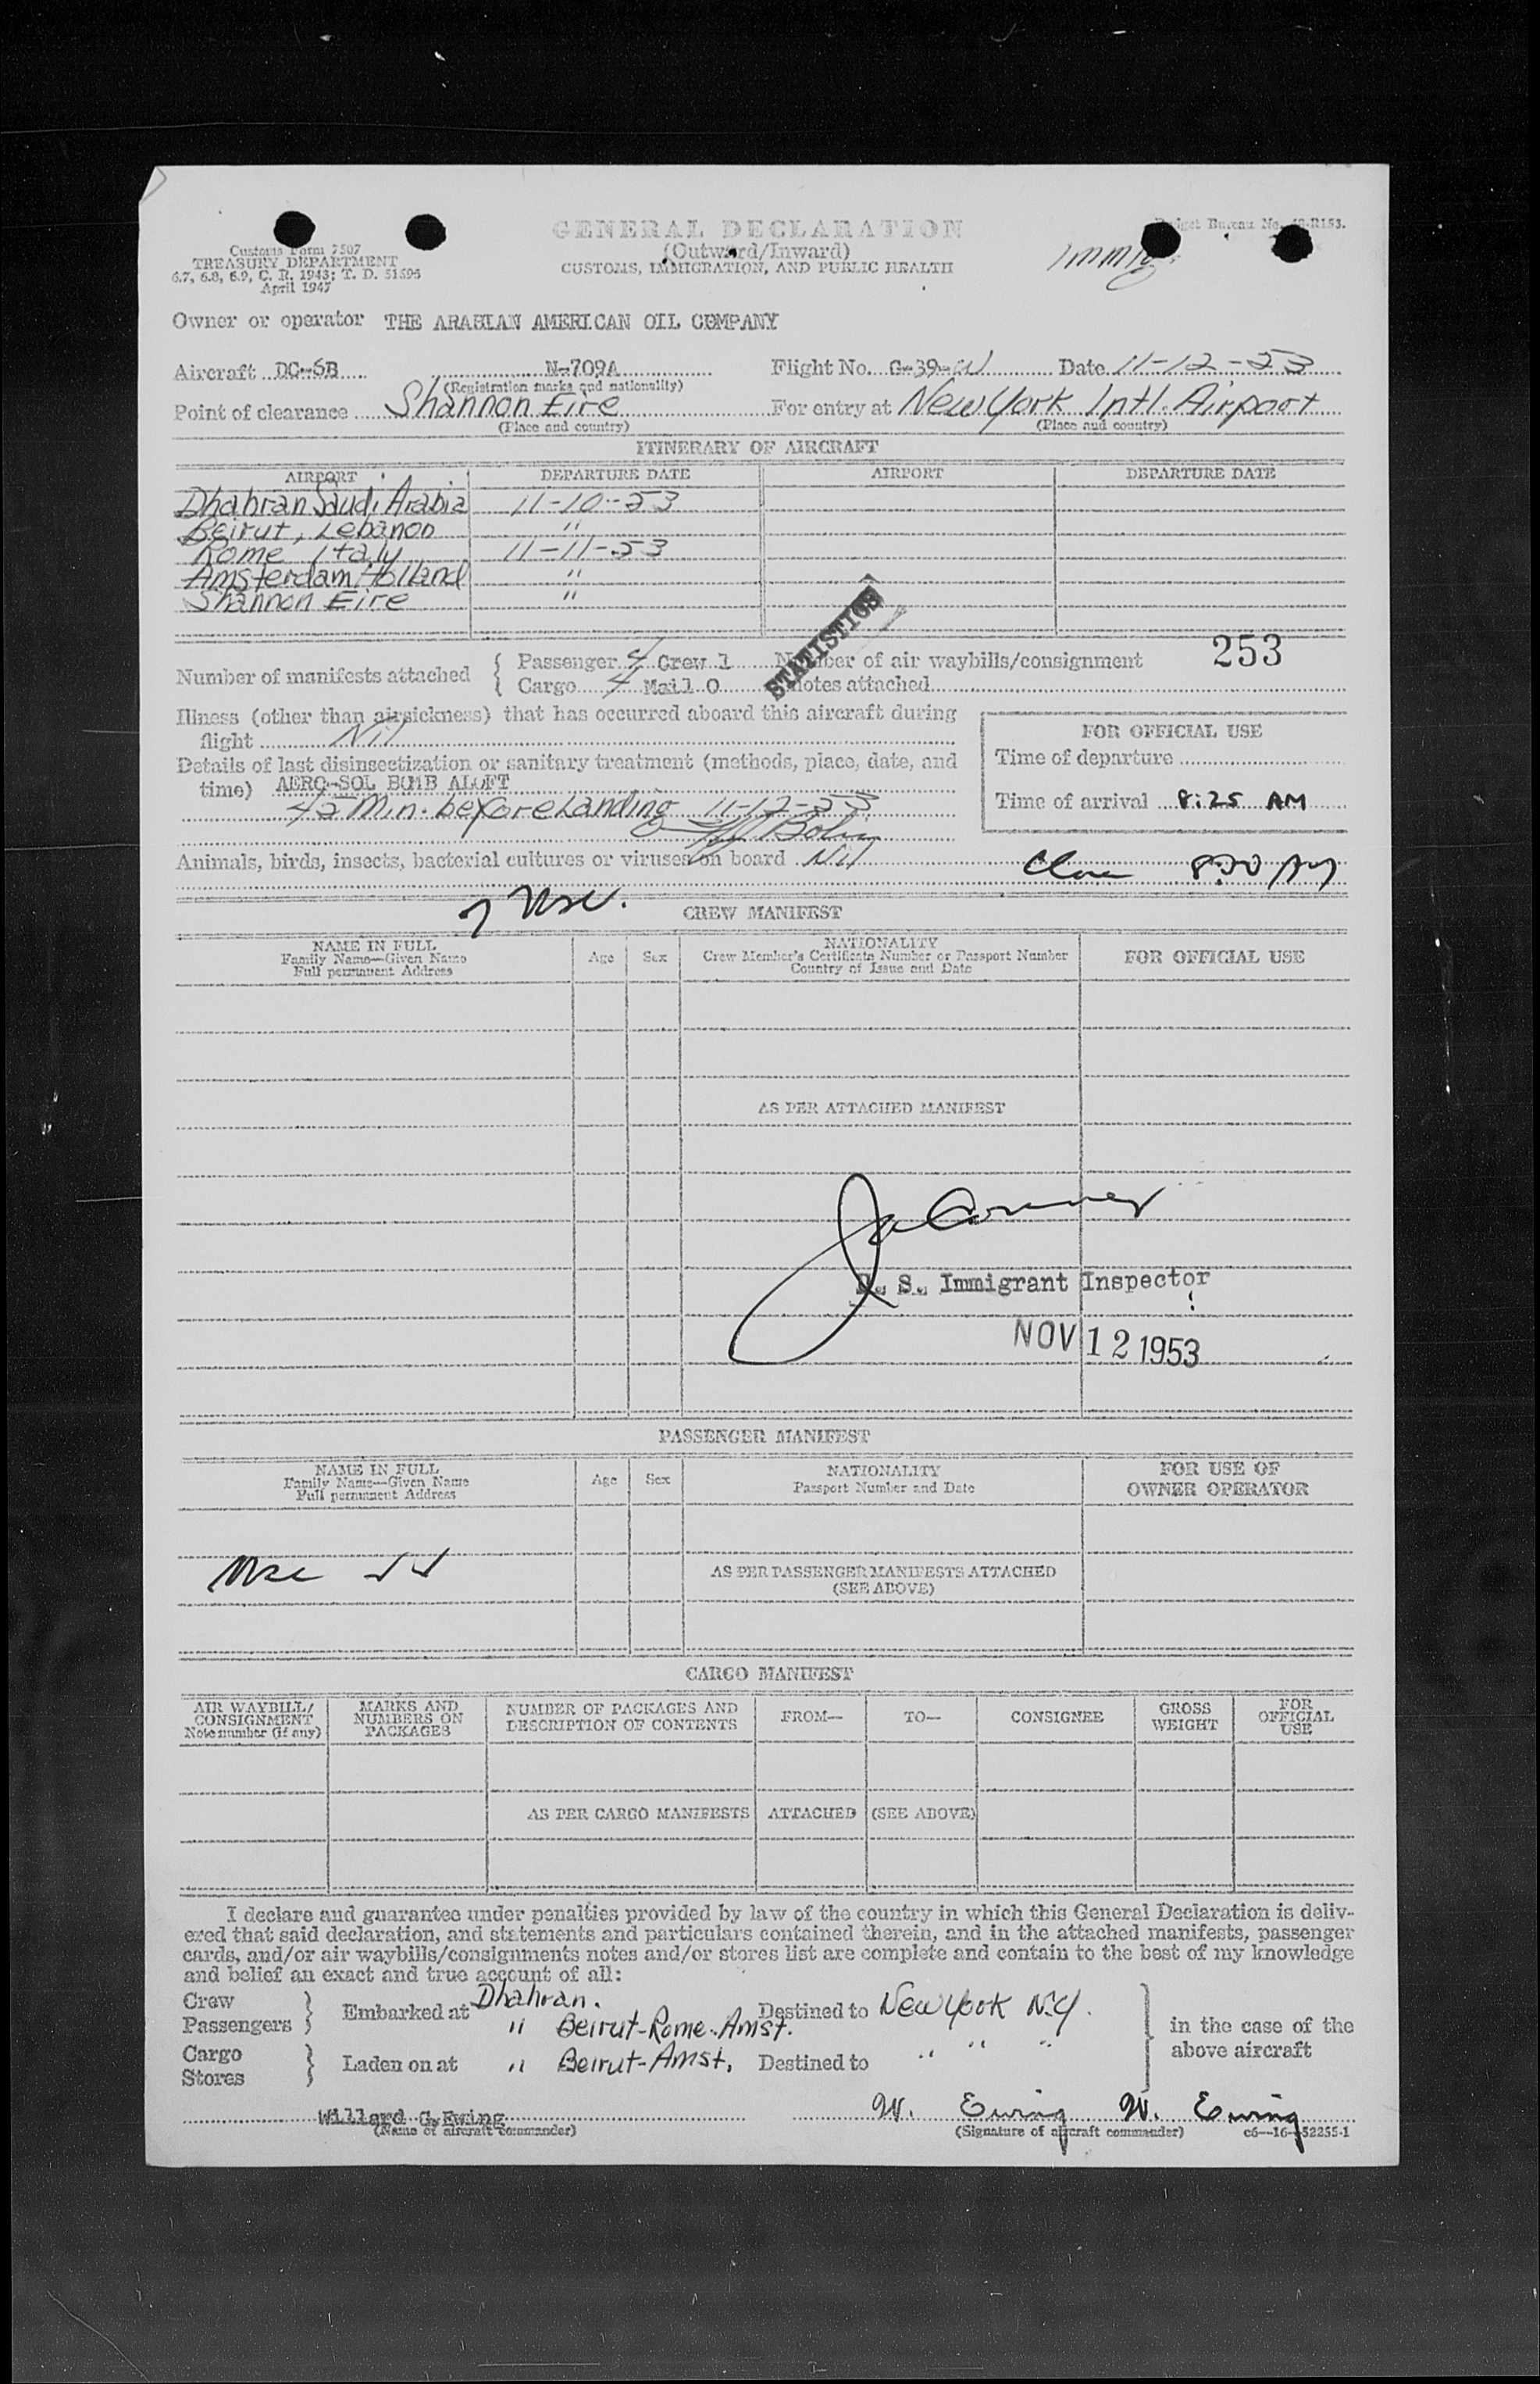 Customs Form 7507
TREASURY DEPARTMENT
6.7, 6.8, 6.9, C. R. 1943; T. D. 51696
April 1947
GENERAL DECLARATION
(Outward/Inward)
CUSTOMS, IMMIGRATION, AND PUBLIC HEALTH
Budget Bureau No. 48-R153.
Immig
Owner or operator THE ARABIAN AMERICAN OIL COMPANY
Aircraft DC-6B N-709A Flight No. G-39-W Date 11-12-53
(Registration marks and nationality)
Point of clearance Shannon Eire For entry at New York Intl. Airport
(Place and country) (Place and country)
ITINERARY OF AIRCRAFT
AIRPORT DEPARTURE DATE AIRPORT DEPARTURE DATE
Dhahran Saudi Arabia 11-10-53
Beirut, Lebanon "
Rome Italy 11-11-53
Amsterdam, Holland "
Shannon Eire "
STATISTICS
253
Number of manifests attached { Passenger 4 Crew 1 Number of air waybills/consignment
Cargo 4 Mail 0 notes attached
Illness (other than airsickness) that has occurred aboard this aircraft during
flight Nil
Details of last disinsectization or sanitary treatment (methods, place, date, and
time) AERO-SOL BOMB ALOFT
45 Min. before Landing 11-12-53
FOR OFFICIAL USE
Time of departure
Time of arrival 8:25 AM
Animals, birds, insects, bacterial cultures or viruses on board Nil
CREW MANIFEST
NAME IN FULL
Family Name—Given Name
Full permanent Address
Age Sex
NATIONALITY
Crew Member's Certificate Number or Passport Number
Country of Issue and Date
FOR OFFICIAL USE
AS PER ATTACHED MANIFEST
U. S. Immigrant Inspector
NOV 12 1953
PASSENGER MANIFEST
NAME IN FULL
Family Name—Given Name
Full permanent Address
Age Sex
NATIONALITY
Passport Number and Date
FOR USE OF
OWNER OPERATOR
AS PER PASSENGER MANIFESTS ATTACHED
(SEE ABOVE)
CARGO MANIFEST
AIR WAYBILL/
CONSIGNMENT
Note number (if any)
MARKS AND
NUMBERS ON
PACKAGES
NUMBER OF PACKAGES AND
DESCRIPTION OF CONTENTS
FROM—
TO—
CONSIGNEE
GROSS
WEIGHT
FOR
OFFICIAL
USE
AS PER CARGO MANIFESTS ATTACHED (SEE ABOVE)
I declare and guarantee under penalties provided by law of the country in which this General Declaration is deliv-
ered that said declaration, and statements and particulars contained therein, and in the attached manifests, passenger
cards, and/or air waybills/consignments notes and/or stores list are complete and contain to the best of my knowledge
and belief an exact and true account of all:
Crew
Passengers } Embarked at Dhahran. Destined to New York N.Y.
" Beirut-Rome-Amst. " " "
Cargo
Stores } Laden on at " Beirut-Amst. Destined to
in the case of the
above aircraft
Willard G. Ewing W. Ewing W. Ewing
(Name of aircraft commander) (Signature of aircraft commander) c6—16—52255-1